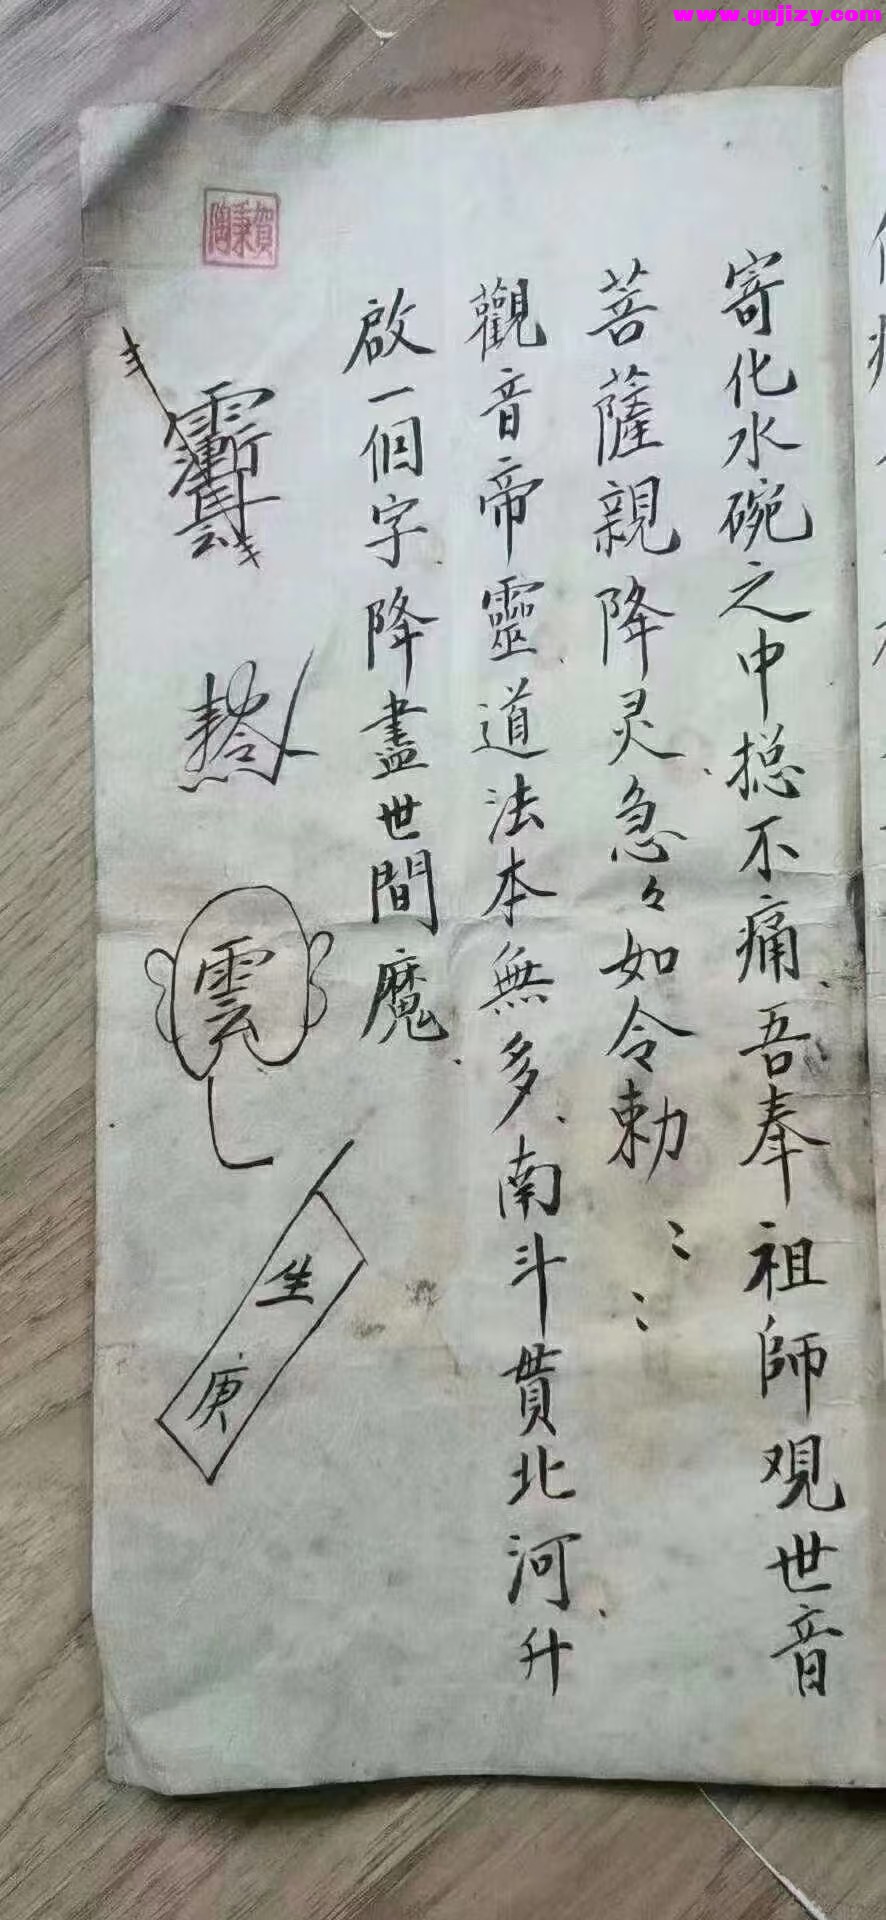 www.gujizy.com
寄化水碗之中捴不痛吾奉祖師观世音
菩薩親降灵急々如令勅
觀音帝靈道法本無多南斗貫北河升
啟一個字降盡世間魔
雲
生
庚